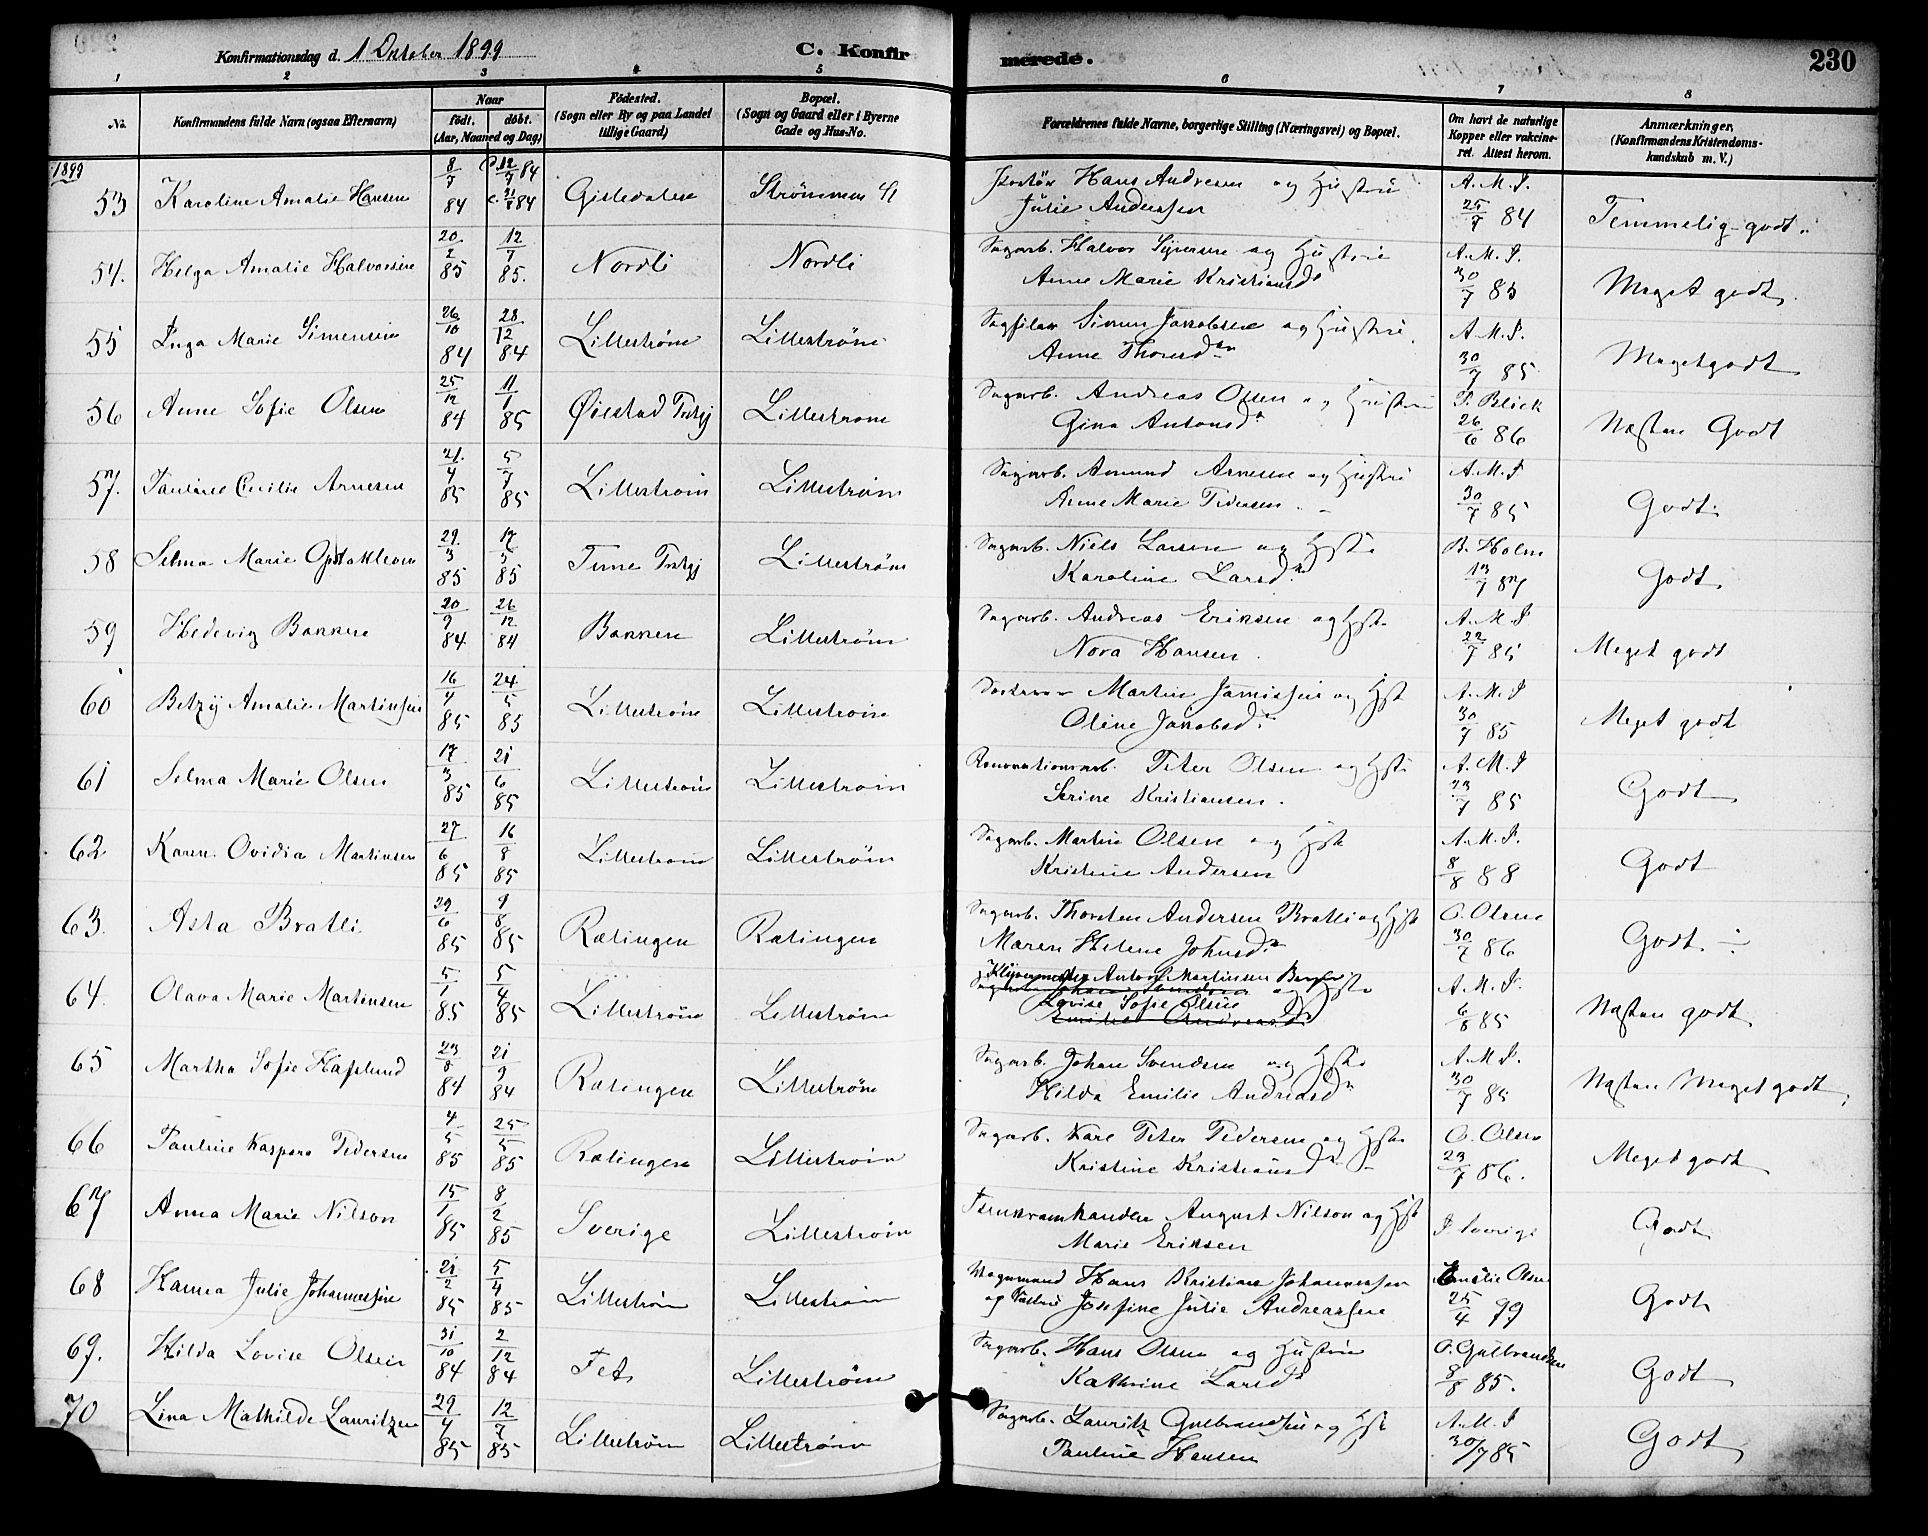 Konfirmationsdag d. 1 Oktober 1899
C. Konfirmerede.
230
1 2 3 4 5 6 7 8
No.
Konfirmandens fulde Navn (ogsaa Efternavn)
Naar
født. døbt.
(Aar, Maaned og Dag)
Fødested.
(Sogn eller By og paa Landet
tillige Gaard)
Bopæl.
(Sogn og Gaard eller i Byerne
Gade og Hus-No.
Forældrenes fulde Navne, borgerlige Stilling (Næringsvei) og Bopæl.
Om havt de naturlige
Kopper eller vakcine-
ret. Attest herom.
Anmærkninger.
(Konfirmandens Kristendoms-
kundskab m. V.)
1899
53 Karoline Amalie Hansen 8/7 84 12/7 84 84 Strømmen Hans Andresen og Hustru Julie Anderssen A.M.J. 25/7 84 Temmelig godt.
54. Helga Amalie Halvorsen 20/2 85 12/7 85. Nordli Nordli Sagarb. Halvor Syversen og Hustru Anne Marie Kristiansd A.M.J. 30/7 85 Meget godt.
55 Inga Marie Simensen 26/10 84 28/12 84 Lillestrøm Lillestrøm Simen Jakobsen og Hustru Anne A.M.J. 30/7 85 Meget godt
56 Anne Sofie Olsen 25/12 84 11/1 85 Øiestad Lillestrøm Sagarb. Andreas Olsen og Hustru Gina Antonsd. Blick 26/6 86 Næsten Godt
57. Pauline Cecilie Arnesen 21./4 85 5/7 85 Lillestrøm Lillestrøm Sagarb. Amund Arnesen og Hustru Anne Marie Pedersen A.M.J 30/7 85 Godt.
58 Selma Marie 29./3 85 17/5 85 Lillestrøm Sagarb. Niels Larsen og Hstr Karoline Larsd. B. Holm 13/7 87 Godt
59 Hedevig Bakken 20/9 84 26/12 84 Bakken Lillestrøm Sagarb. Andreas Eriksen og Hstr. Nora Hansen. A.M.J 22/7 85 Meget godt
60 Betzy Amalie Martinsen 16/4 85 24/5 85 Lillestrøm Lillestrøm Martin og Hst Oline Jakobsd. A.M.J 30/7 85 Meget godt
61 Selma Marie Olsen 17/3 85 21/6 85 Lillestrøm Lillestrøm Renovationsarb. Peter Olsen og Hstr Serine Kristiansen. A.M.J 23/7 85 Godt
62 Karen Ovidia Martinsen 27/6 85 16/8 85 Lillestrøm Lillestrøm Sagarb. Martin Olsen og Hstr Kristine Andersen A.M.J. 8/8 88 Godt
63. Asta Bratli 29/6 85 9/8 85 Rælingen Rælingen Sagarb. Thorsten Andersen Bratli og Hstr Maren Helene Johnsd. O. Olsen 30/7 86 Godt. ÷
64. Olava Marie Martinsen 5/1 85 5/4 85 Lillestrøm Lillestrøm Anton Martinsen og Hstr Lovise Sofie Olsen A.M.J. 6/8 85 Næsten godt
65 Martha Sofie Haslund 23/8 84 21/9 84 Rælingen Lillestrøm Sagarb. Johan Svendsen og Hstr Hilda Emilie Andreasd A.M.J. 30/7 85 Næsten Meget godt.
66 Pauline Kaspara Pedersen 4/5 85 25/5 85 Rælingen Lillestrøm Sagarb. Karl Peter Pedersen og Hstr Kristine Kristiansd O. Olsen 23/7 86. Meget godt
67 Anna Marie Nilson 15/1 85 8/2 85 Sverige Lillestrøm August Nilson og Hst Marie Eriksen I Sverige Godt
68 Hanna Julie Johannessen 21/2 85 5/4 85 Lillestrøm Lillestrøm Hans Kristian Johannessen og Hustru Josefine Julie Andreassen Emilie Olsen 25/4 99 Godt
69. Hilda Lovise Olsen 31/10 84 2/12 84 Fet Lillestrøm Sagarb. Hans Olsen og Hustru Kathrine Larsd O. Gulbrandsen 8/8 85. Godt
70 Lina Mathilde Lauritzen 29/4 85 12/7 85 Lillestrøm Lillestrøm Sagarb. Lauritz Gulbrandsen og Hst Pauline Hansen A.M.J 30/7 85 Godt